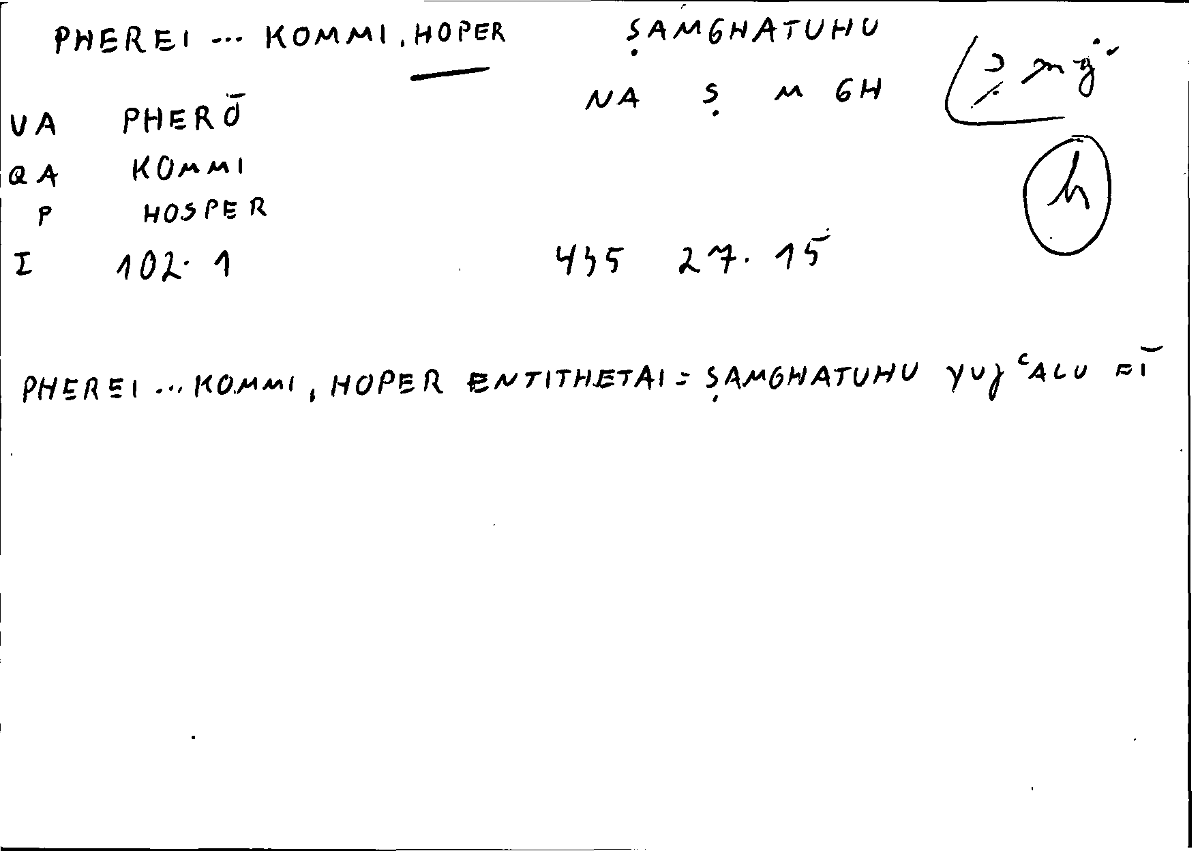 PHEREI ... KOMMI, HOPER ṢAMGHATUHU
NA Ṣ M GH
VA PHERŌ
QA KOMMI
P HOSPER
h
I 102.1 435 27.15
PHEREI ... KOMMI, HOPER ENTITHETAI = ṢAMGHATUHU YUJ ʿALU FĪ